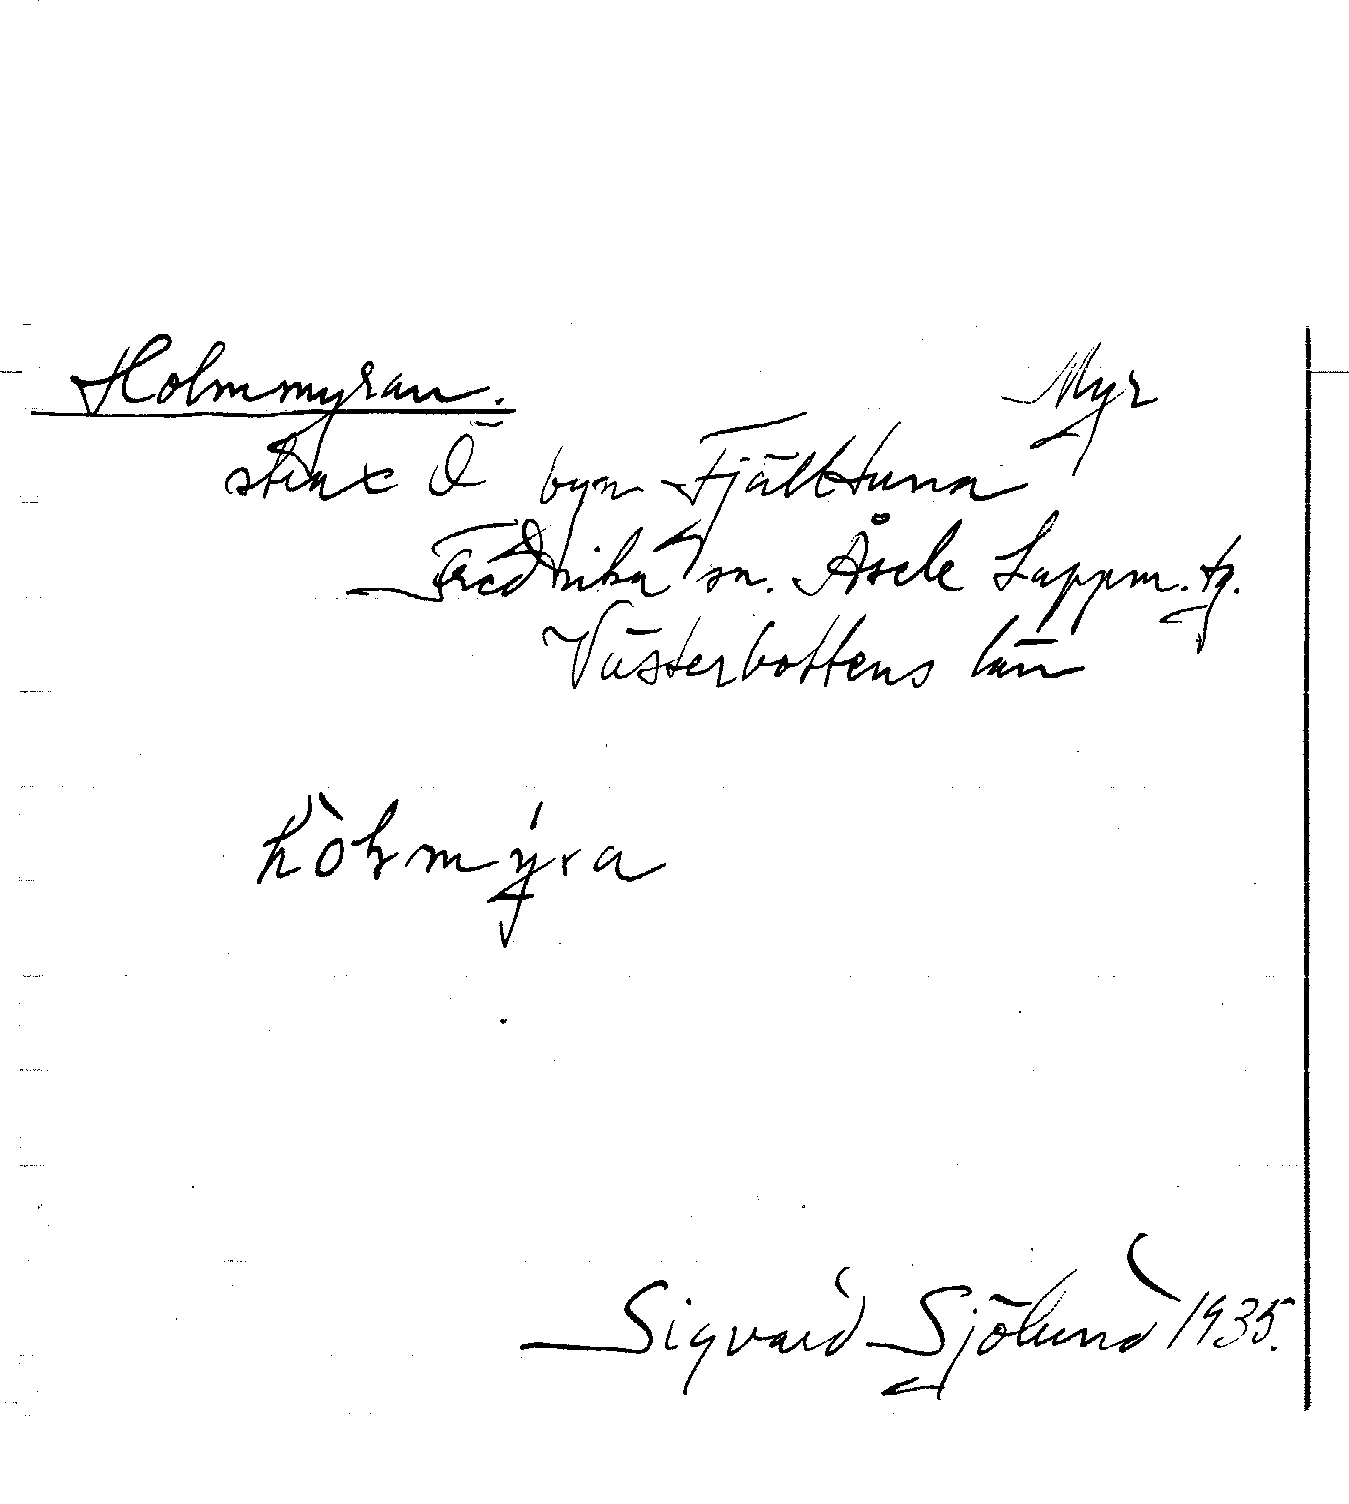 Holmmyran. Myr
strax Ö byn Fjälltuna
Fredrika sn. Åsele Lappm. tg.
Västerbottens län
Sigvard Sjölund 1935.